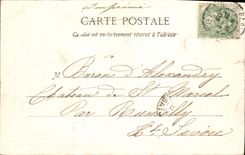 Imprimé
CARTE POSTALE
Ce côté est exclusivement réservé à l'adresse
Baron d'Alexandry
Chateau de St Marcel
Par Rumilly
Hte Savoie